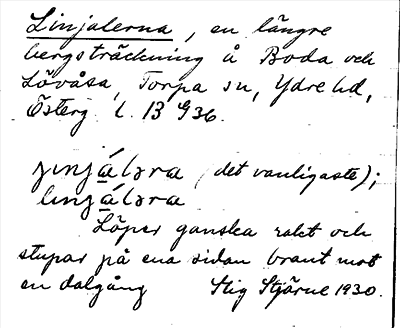 Linjalerna, en längre
bergsträckning å Boda och
Lövåsa, Torpa sn, Ydre hd,
Österg. l. 13 G 36.
jınjálǝra (det vanligaste);
lınjálǝra
Löper ganska rakt och
stupar på ena sidan brant mot
en dalgång Stig Stjärne 1930.